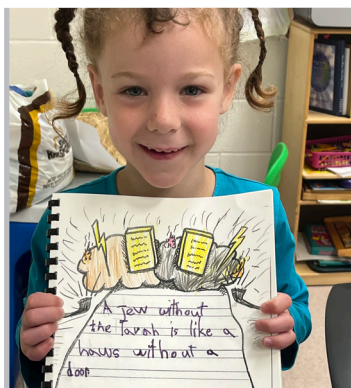 A Jew without
the Tarah is like a
haws without a
door